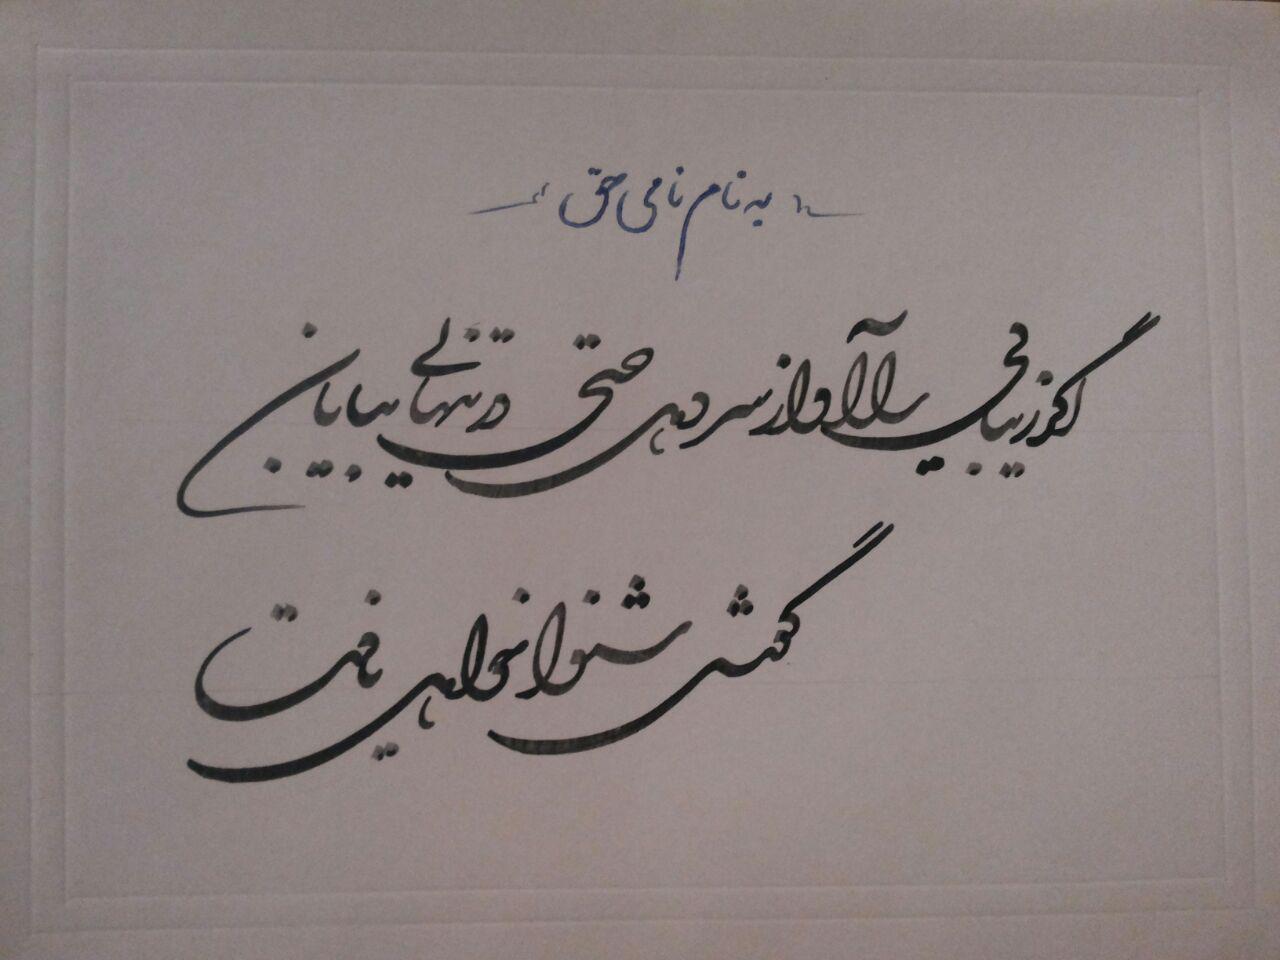 به نام نامی حق
اگر زیبایی را آواز سر دهی حتی در تنهایی بیابان
گوش شنوا خواهی یافت